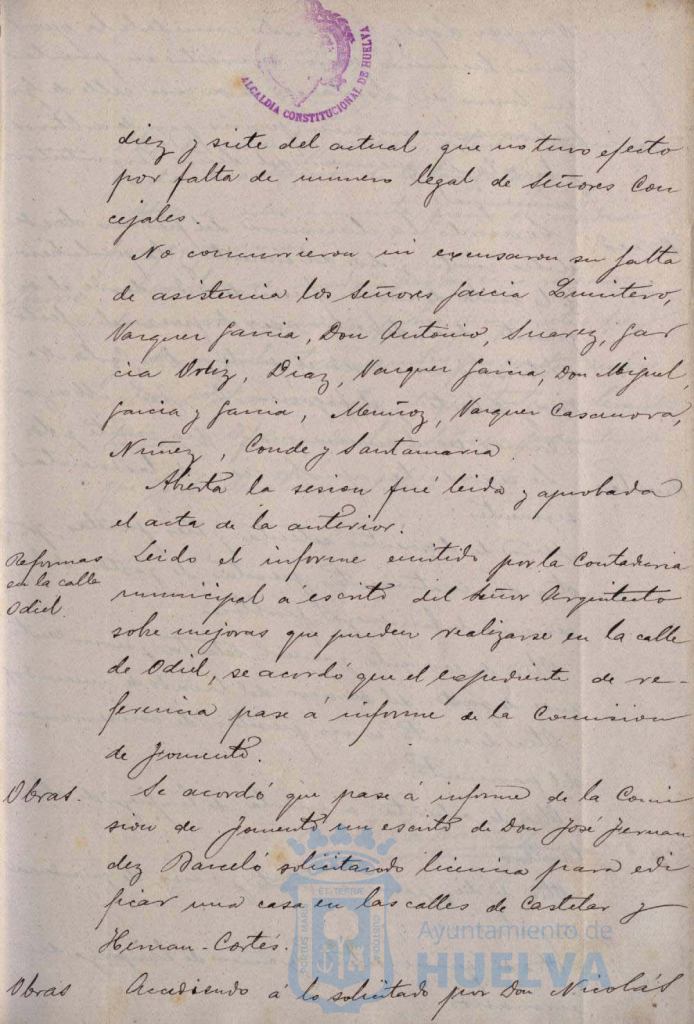 ALCALDIA CONSTITUCIONAL DE HUELVA
diez y siete del actual que no tuvo efecto
por falta de número legal de Señores Con
cejales.
No concurrieron ni excusaron su falta
de asistencia los Señores Garcia Quintero,
Vazquez Garcia, Don Antonio, Suarez, Gar
cia Ortiz, Diaz, Vazquez Garcia, Don Miguel,
Garcia y Garcia, Muñoz, Vazquez Casanova,
Nuñez, Conde y Santamaria.
Abierta la sesion fué leida y aprobada
el acta de la anterior.
Reformas
en la calle
Odiel.
Leido el informe emitido por la Contaduria
municipal á escrito del Señor Arquitecto
sobre mejoras que pueden realizarse en la calle
de Odiel, se acordó que el expediente de re-
ferencia pase á informe de la Comision
de Fomento.
Obras.
Se acordó que pase á informe de la Comi
sion de Fomento un escrito de Don José Fernan
dez Barceló solicitando licencia para edi
ficar una casa en las calles de Castelar y
Hernan-Cortés.
Obras
Accediendo á lo solicitado por Don Nicolás
PORTUS MARIS ET TERRAE CUSTODIA
Ayuntamiento de
HUELVA